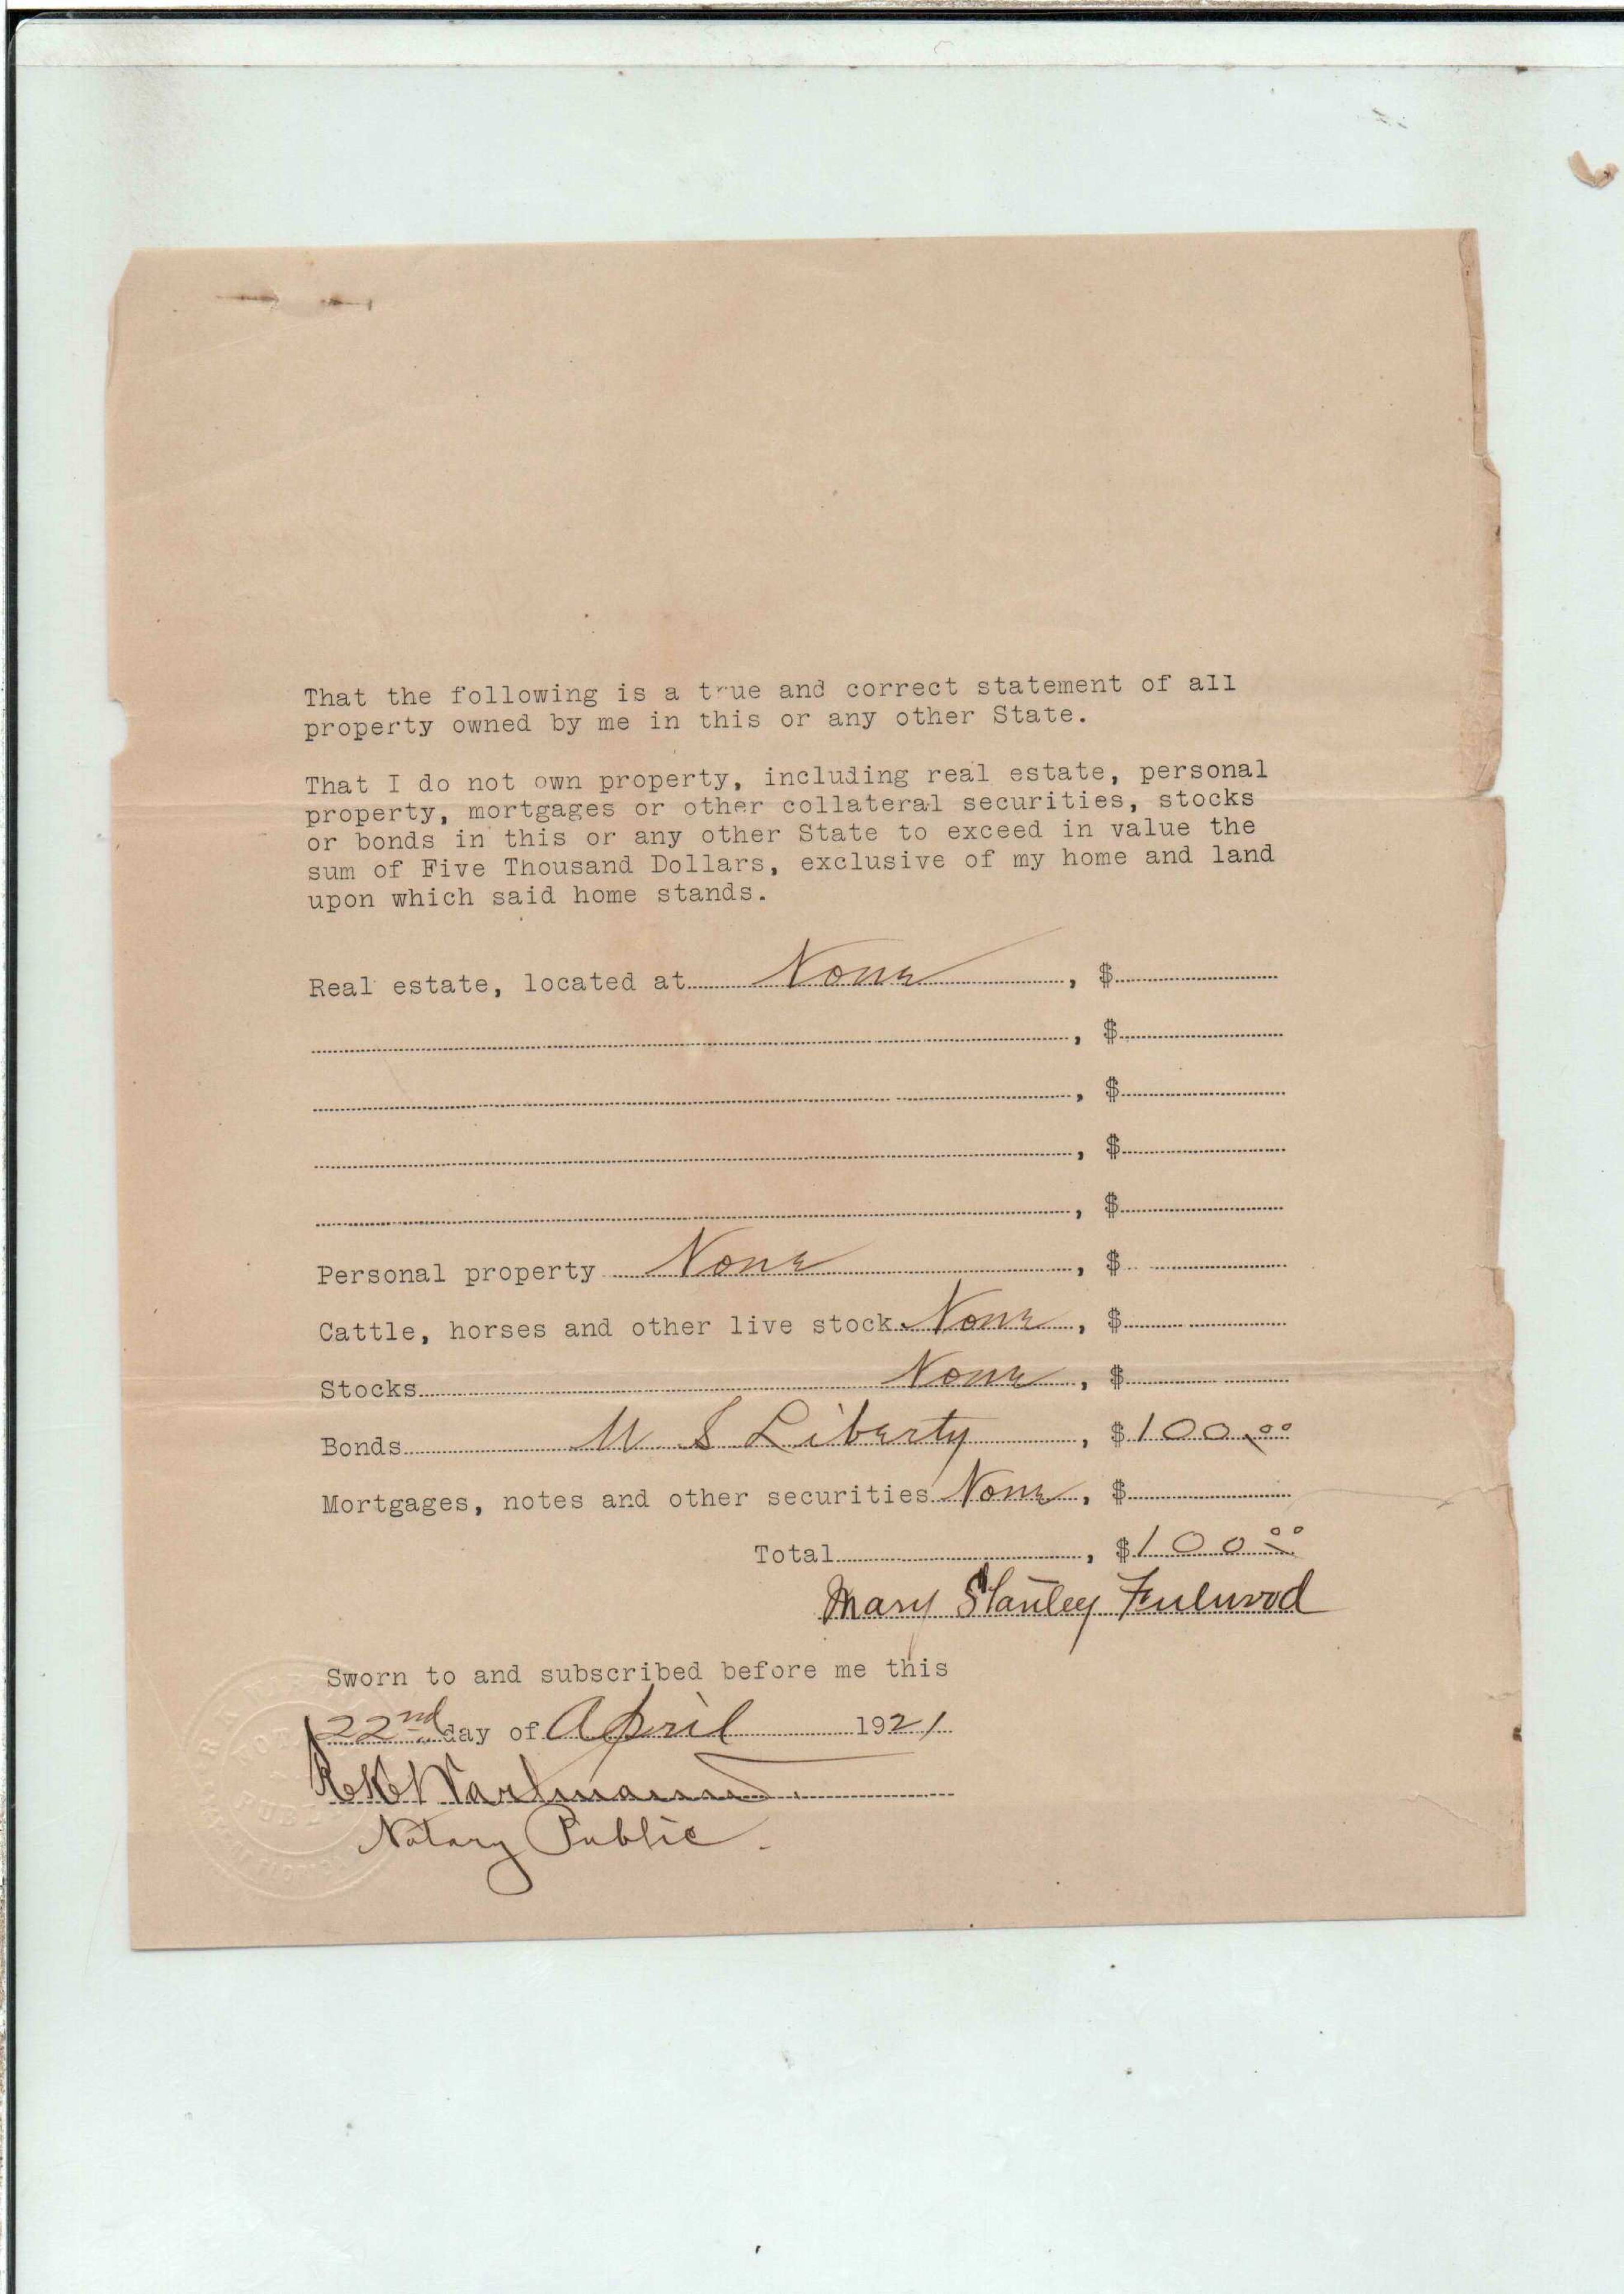 That the following is a true and correct statement of all
property owned by me in this or any other State.
That I do not own property, including real estate, personal
property, mortgages or other collateral securities, stocks
or bonds in this or any other State to exceed in value the
sum of Five Thousand Dollars, exclusive of my home and land
upon which said home stands.
Real estate, located at None, $
, $
, $
, $
, $
Personal property None, $
Cattle, horses and other live stock None, $
Stocks None, $
Bonds U S Liberty, $100.00
Mortgages, notes and other securities None, $
Total, $100.00
Mary Stanley Fulwood
Sworn to and subscribed before me this
22nd day of April 1921
Notary Public.